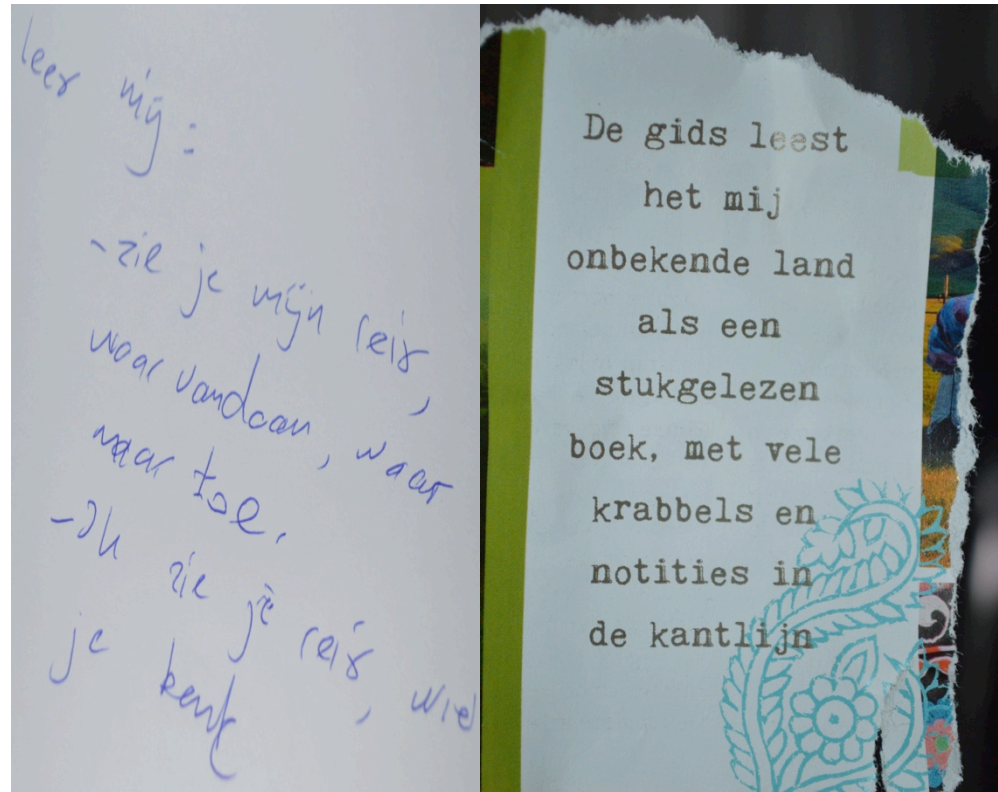 leer mij:
-zie je mijn reis,
waar vandaan, waar
naar toe.
-Ik zie je reis, wie
je bent
De gids leest
het mij
onbekende land
als een
stukgelezen
boek, met vele
krabbels en
notities in
de kantlijn